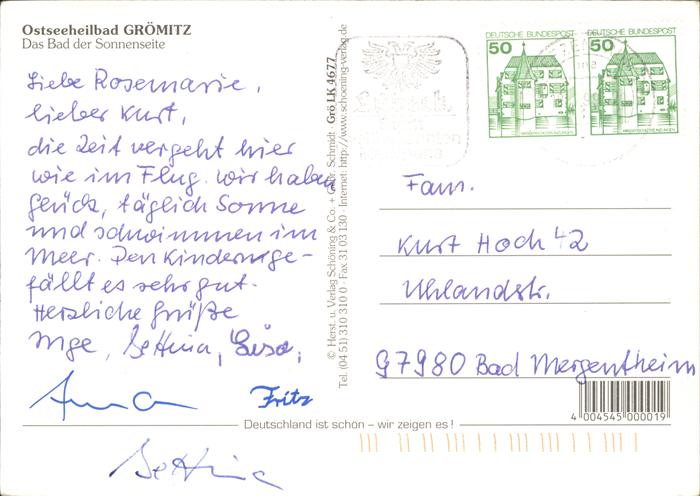 Ostseeheilbad GRÖMITZ
Das Bad der Sonnenseite
Liebe Rosemarie,
lieber Kurt,
die Zeit vergeht hier
wie im Flug. Wir haben
Glück, täglich Sonne
und schwimmen im
Meer. Den Kindern ge-
fällt es sehr gut.
Herzliche Grüße
Inge, Bettina, Lisa,
Anna Fritz
Bettina
© Herst. u. Verlag Schöning & Co. + Gebr. Schmidt · Grö LK 4677
Tel. (04 51) 310 310 0 · Fax 31 03 130 · Internet: http://www.schoening-verlag.de
DEUTSCHE BUNDESPOST
50
WASSERSCHLOSS INZLINGEN
DEUTSCHE BUNDESPOST
50
WASSERSCHLOSS INZLINGEN
Fam.
Kurt Hoch 42
Uhlandstr.
97980 Bad Mergentheim
4 004545 000019
Deutschland ist schön – wir zeigen es!